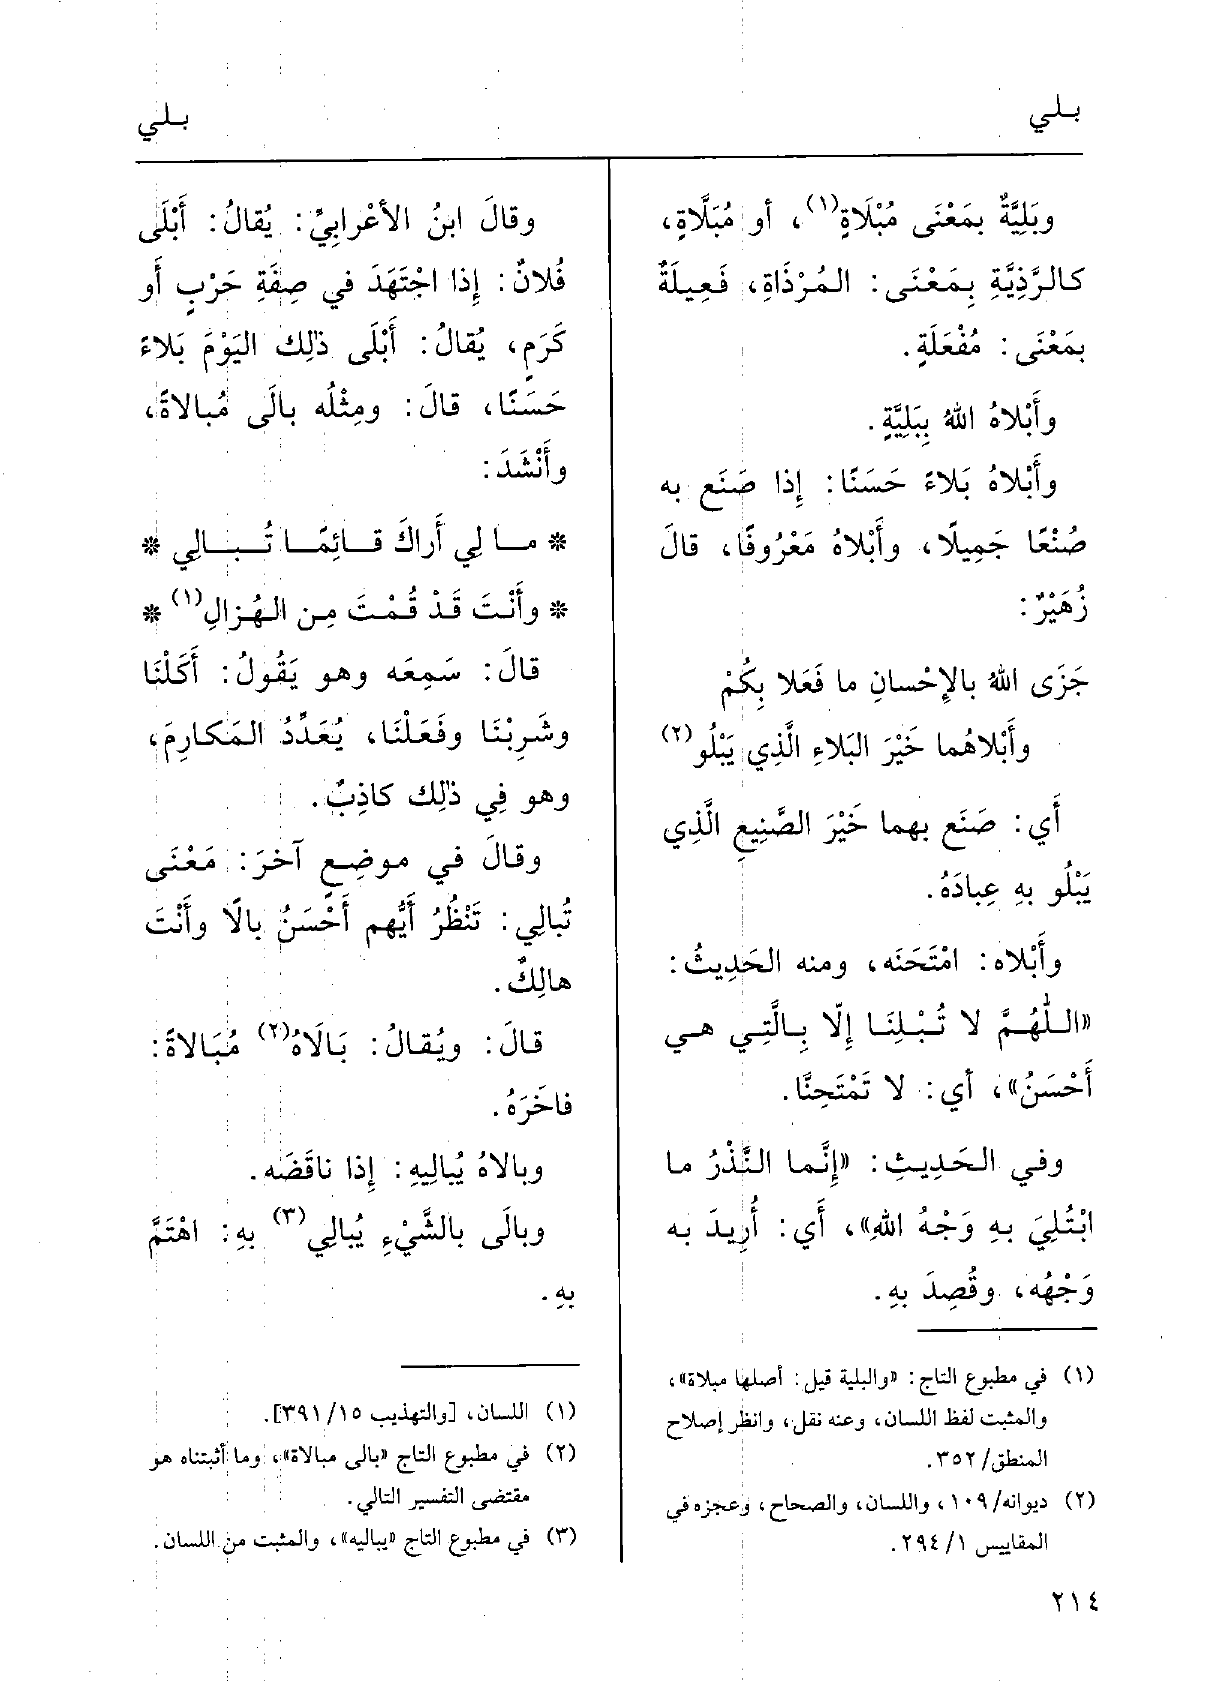 بـلي
بـلي
وبَلِيَّةٌ بمَعْنَى مُبْلَاةٍ(١)، أو مُبَلَّاةٍ،
كالرَّذِيَّةِ بِمَعْنَى: المُرْذَاةِ، فَعِيلَةٌ
بمَعْنَى: مُفْعَلَةٍ.
وأَبْلاهُ اللهُ بِبَلِيَّةٍ.
وأَبْلاهُ بَلاءً حَسَنًا: إذا صَنَع به
صُنْعًا جَمِيلًا، وأَبْلاهُ مَعْرُوفًا، قالَ
زُهَيْرٌ:
جَزَى اللهُ بالإحْسانِ ما فَعَلا بِكُمْ
وأَبْلاهُما خَيْرَ البَلاءِ الَّذِي يَبْلُو(٢)
أَي: صَنَع بهما خَيْرَ الصَّنِيعِ الَّذِي
يَبْلُو بهِ عِبادَهُ.
وأَبْلاه: امْتَحَنَه، ومنه الحَدِيثُ:
«اللّٰهُمَّ لا تُبْلِنَا إلّا بِالَّتِي هي
أَحْسَنُ»، أي: لا تَمْتَحِنَّا.
وفي الحَدِيثِ: «إنَّما النَّذْرُ ما
ابْتُلِيَ بهِ وَجْهُ اللهِ»، أَي: أُرِيدَ به
وَجْهُه، وقُصِدَ بهِ.
(١) في مطبوع التاج: «والبلية قيل: أصلها مبلاة»،
والمثبت لفظ اللسان، وعنه نقل، وانظر إصلاح
المنطق/ ٣٥٢.
(٢) ديوانه/ ١٠٩، واللسان، والصحاح، وعجزه في
المقاييس ١/ ٢٩٤.
وقالَ ابنُ الأعْرابِيِّ: يُقالُ: أَبْلَى
فُلانٌ: إذا اجْتَهَدَ في صِفَةِ حَرْبٍ أو
كَرَمٍ، يُقالُ: أَبْلَى ذٰلِك اليَوْمَ بَلاءً
حَسَنًا، قالَ: ومِثْلُه بالَى مُبالاةً،
وأَنْشَدَ:
* مـا لِي أَراكَ قـائِمًـا تُـبـالِي *
* وأَنْتَ قَدْ قُمْتَ مِن الهُزالِ(١) *
قالَ: سَمِعَه وهو يَقُولُ: أَكَلْنَا
وشَرِبْنَا وفَعَلْنَا، يُعَدِّدُ المَكارِمَ،
وهو فِي ذٰلِك كاذِبٌ.
وقالَ في موضِعٍ آخَرَ: مَعْنَى
تُبالِي: تَنْظُرُ أَيُّهم أَحْسَنُ بالًا وأَنْتَ
هالِكٌ.
قالَ: ويُقالُ: بَالَاهُ(٢) مُبَالاةً:
فاخَرَهُ.
وبالاهُ يُبالِيهِ: إذا ناقَضَه.
وبالَى بالشَّيْءِ يُبالِي(٣) بهِ: اهْتَمَّ
بهِ.
(١) اللسان، [والتهذيب ١٥/ ٣٩١].
(٢) في مطبوع التاج «بالى مبالاة»، وما أثبتناه هو
مقتضى التفسير التالي.
(٣) في مطبوع التاج «يباليه»، والمثبت من اللسان.
٢١٤